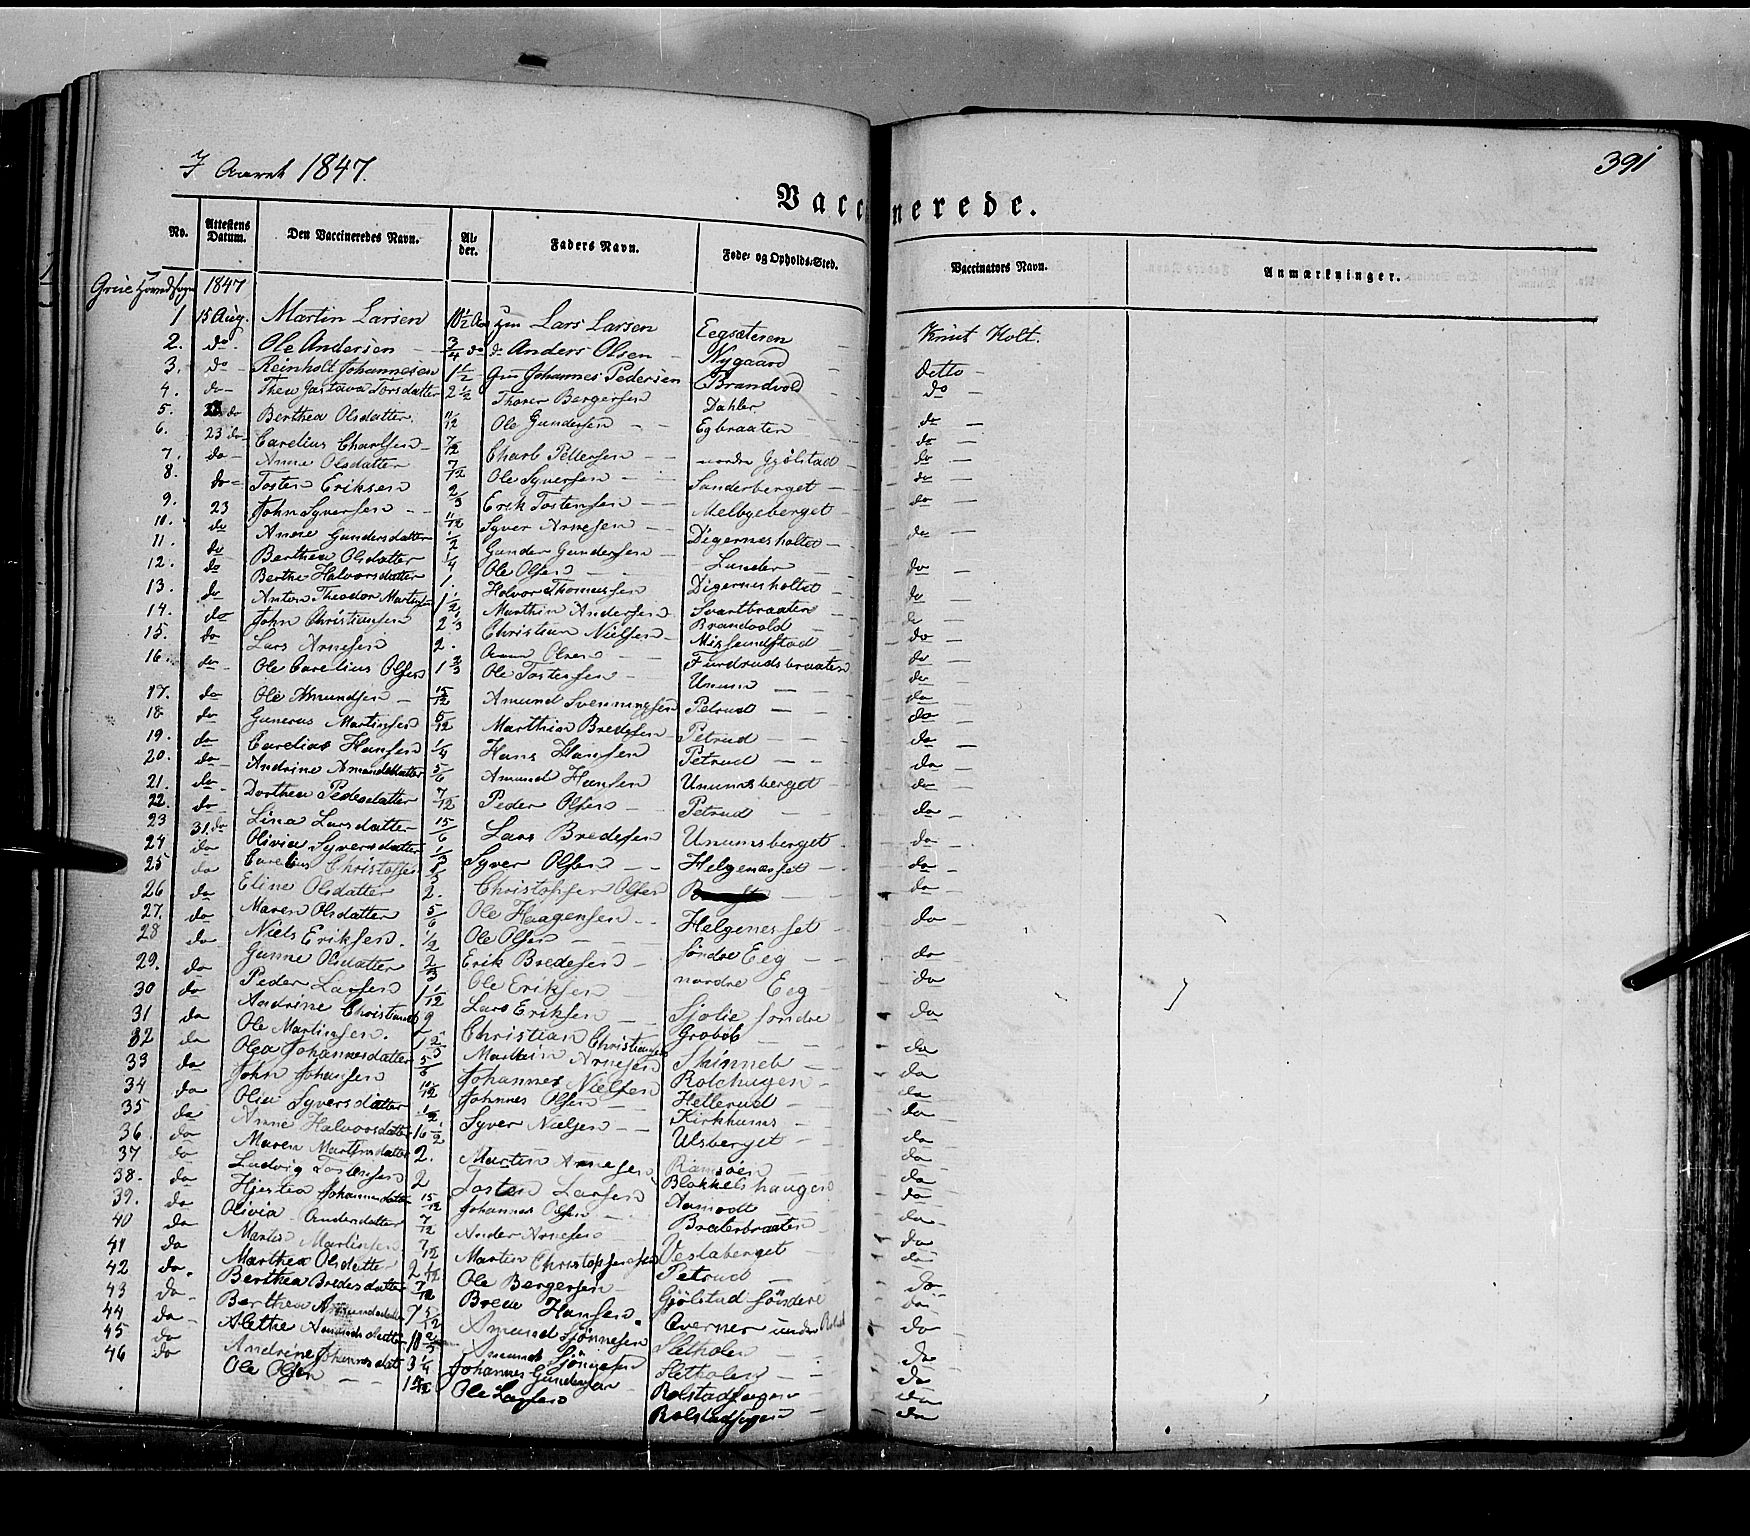 I Aaret 1847.
391
Vaccinerede.
No. Attestens Datum. Den Vaccineredes Navn. Alder. Faders Navn. Føde- og Opholds-Sted. Vaccinators Navn. Anmærkninger.
Grue Hovedsogn 1847
1 15 Aug. Martin Larsen 10 1/2 Lars Larsen Eegsæteren Knut Holt.
2. do Ole Andersen 3/4 do do Anders Olsen Nygaard Detto
3. do Reinholt Johannesen 1 1/2 Johannes Pedersen Brandvold do
4. do Thea Gustava Torsdatter 2 1/2 Thorer Bergersen Dahler do
5. do Berthea Olsdatter. 11/12 Ole Gundersen Egbraaten do
6. 23 do Carelius Charlsen 7/12 Charl Pettersen nordre Gjølstad do
7. do Anne Olsdatter 7/12 Ole Syversen Sanderberget do
8. do Tosten Eriksen 2/3 Erik Tostensen Melbyeberget do
9. 23 John Syversen 11/12 Syver Arnesen Digernesholtet do
10. do Anne Gundersdatter 1/2 Gunder Gundersen Lunder do
11. do Berthea Olsdatter 1/4 Ole Olsen Digernesholtet do
12. do Berthe Halvorsdatter 1. Halvor Thomessen Svartbraaten do
13. do Anton Theodor Martinsen 1 1/2 Marthin Andersen Brandvold do
14. do John Christiansen 2 1/3 Christian Nielsen do
15. do Lars Arnesen 2. Furdrudsbraaten do
16. do Ole Carelius Olsen 1 2/3 Ole Tostensen Unum do
17. do Ole Amundsen 15/12 Amund Svenningsen Petrud do
18 do Gunerus Martinsen 5/12 Marthin Bredesen Petrud do
19. do Carelius Hansen 1/4 Hans Hansen Petrud do
20. do Andrine Amundsdatter 5/6 Amund Hansen Unumsberget do
21. do Dorthea Pedersdatter 7/12 Peder Olsen Petrud do
22. do Lina Larsdatter 15/6 Lars Bredesen Unumsberget do
23 31. do Olivia Syversdatter 1/3 Syver Olsen Helgenesset do
24 do Carelius Christoffer Olsen do
25 do Eline Olsdatter 2. Ole Haagensen Helgenesset do
26 do Maren Olsdatter 5/6 Ole Olsen søndre Eeg do
27. do Niels Eriksen. 1/2 Erik Bredesen nordre Eeg do
28 do Gunne Olsdatter 2/3 Ole Eriksen do
29. do Peder Larsen 1 1/12 Lars Eriksen Sjølie søndre do
30 do Andrine Christiansd Christian Christiansen Grøbøl do
31 do Ole Martinsen. Martin Arnesen Skinneb do
32 do Olea Johannesdatter 5/8 Johannes Nielsen Rotehugen do
33 do John Johansen 10/12 Johannes Olsen Hellerud do
34 do Olia Syversdatter 1/2 Syver Nielsen Kirkhums do
35 do Anne Halvorsdatter 16 1/2 Ulsberget do
36. do Maren Martinsdatter 2. Martin Arnesen do
37 do Ludvig Tostensen 2 Tosten Larsen Blokkelshaugen do
38. do Johannesdatter 15/12 Johannes Olsen Aamodt do
39. do Olivia Andersdatter 7/12 Ander Arnesen Braterbraaten do
40 do Martin Martinsen 7/12 Martin Christophersen Vestaberget do
41 do Marthea Olsdatter 2 1/12 Ole Bergersen Petrud do
42 do. Berthea Bredesdatter 7/12 Brede Hansen. Gjølstad søndere do
43 do Berthea Amundsdatter 7 5/12 Amund Sjønnesen Overnes under do
44 do Alethe Amundsdatter 10 Amund Sjønnesen Sletholen do
45 do Andrine Johannesdat 3 1/4 Johannes Gundersen Sletholen do
46 do Ole Olsen Ole Larsen Rolstadseyen do
Rolstadseyen do